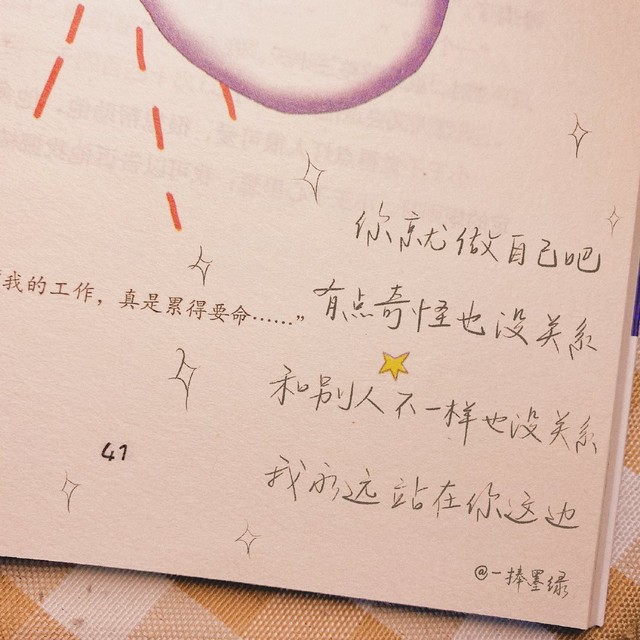 你就做自己吧
有点奇怪也没关系
我的工作，真是累得要命……”
和别人不一样也没关系
41
我永远站在你这边
@一捧墨绿